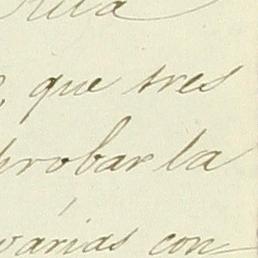 que tres
probar la
varias con